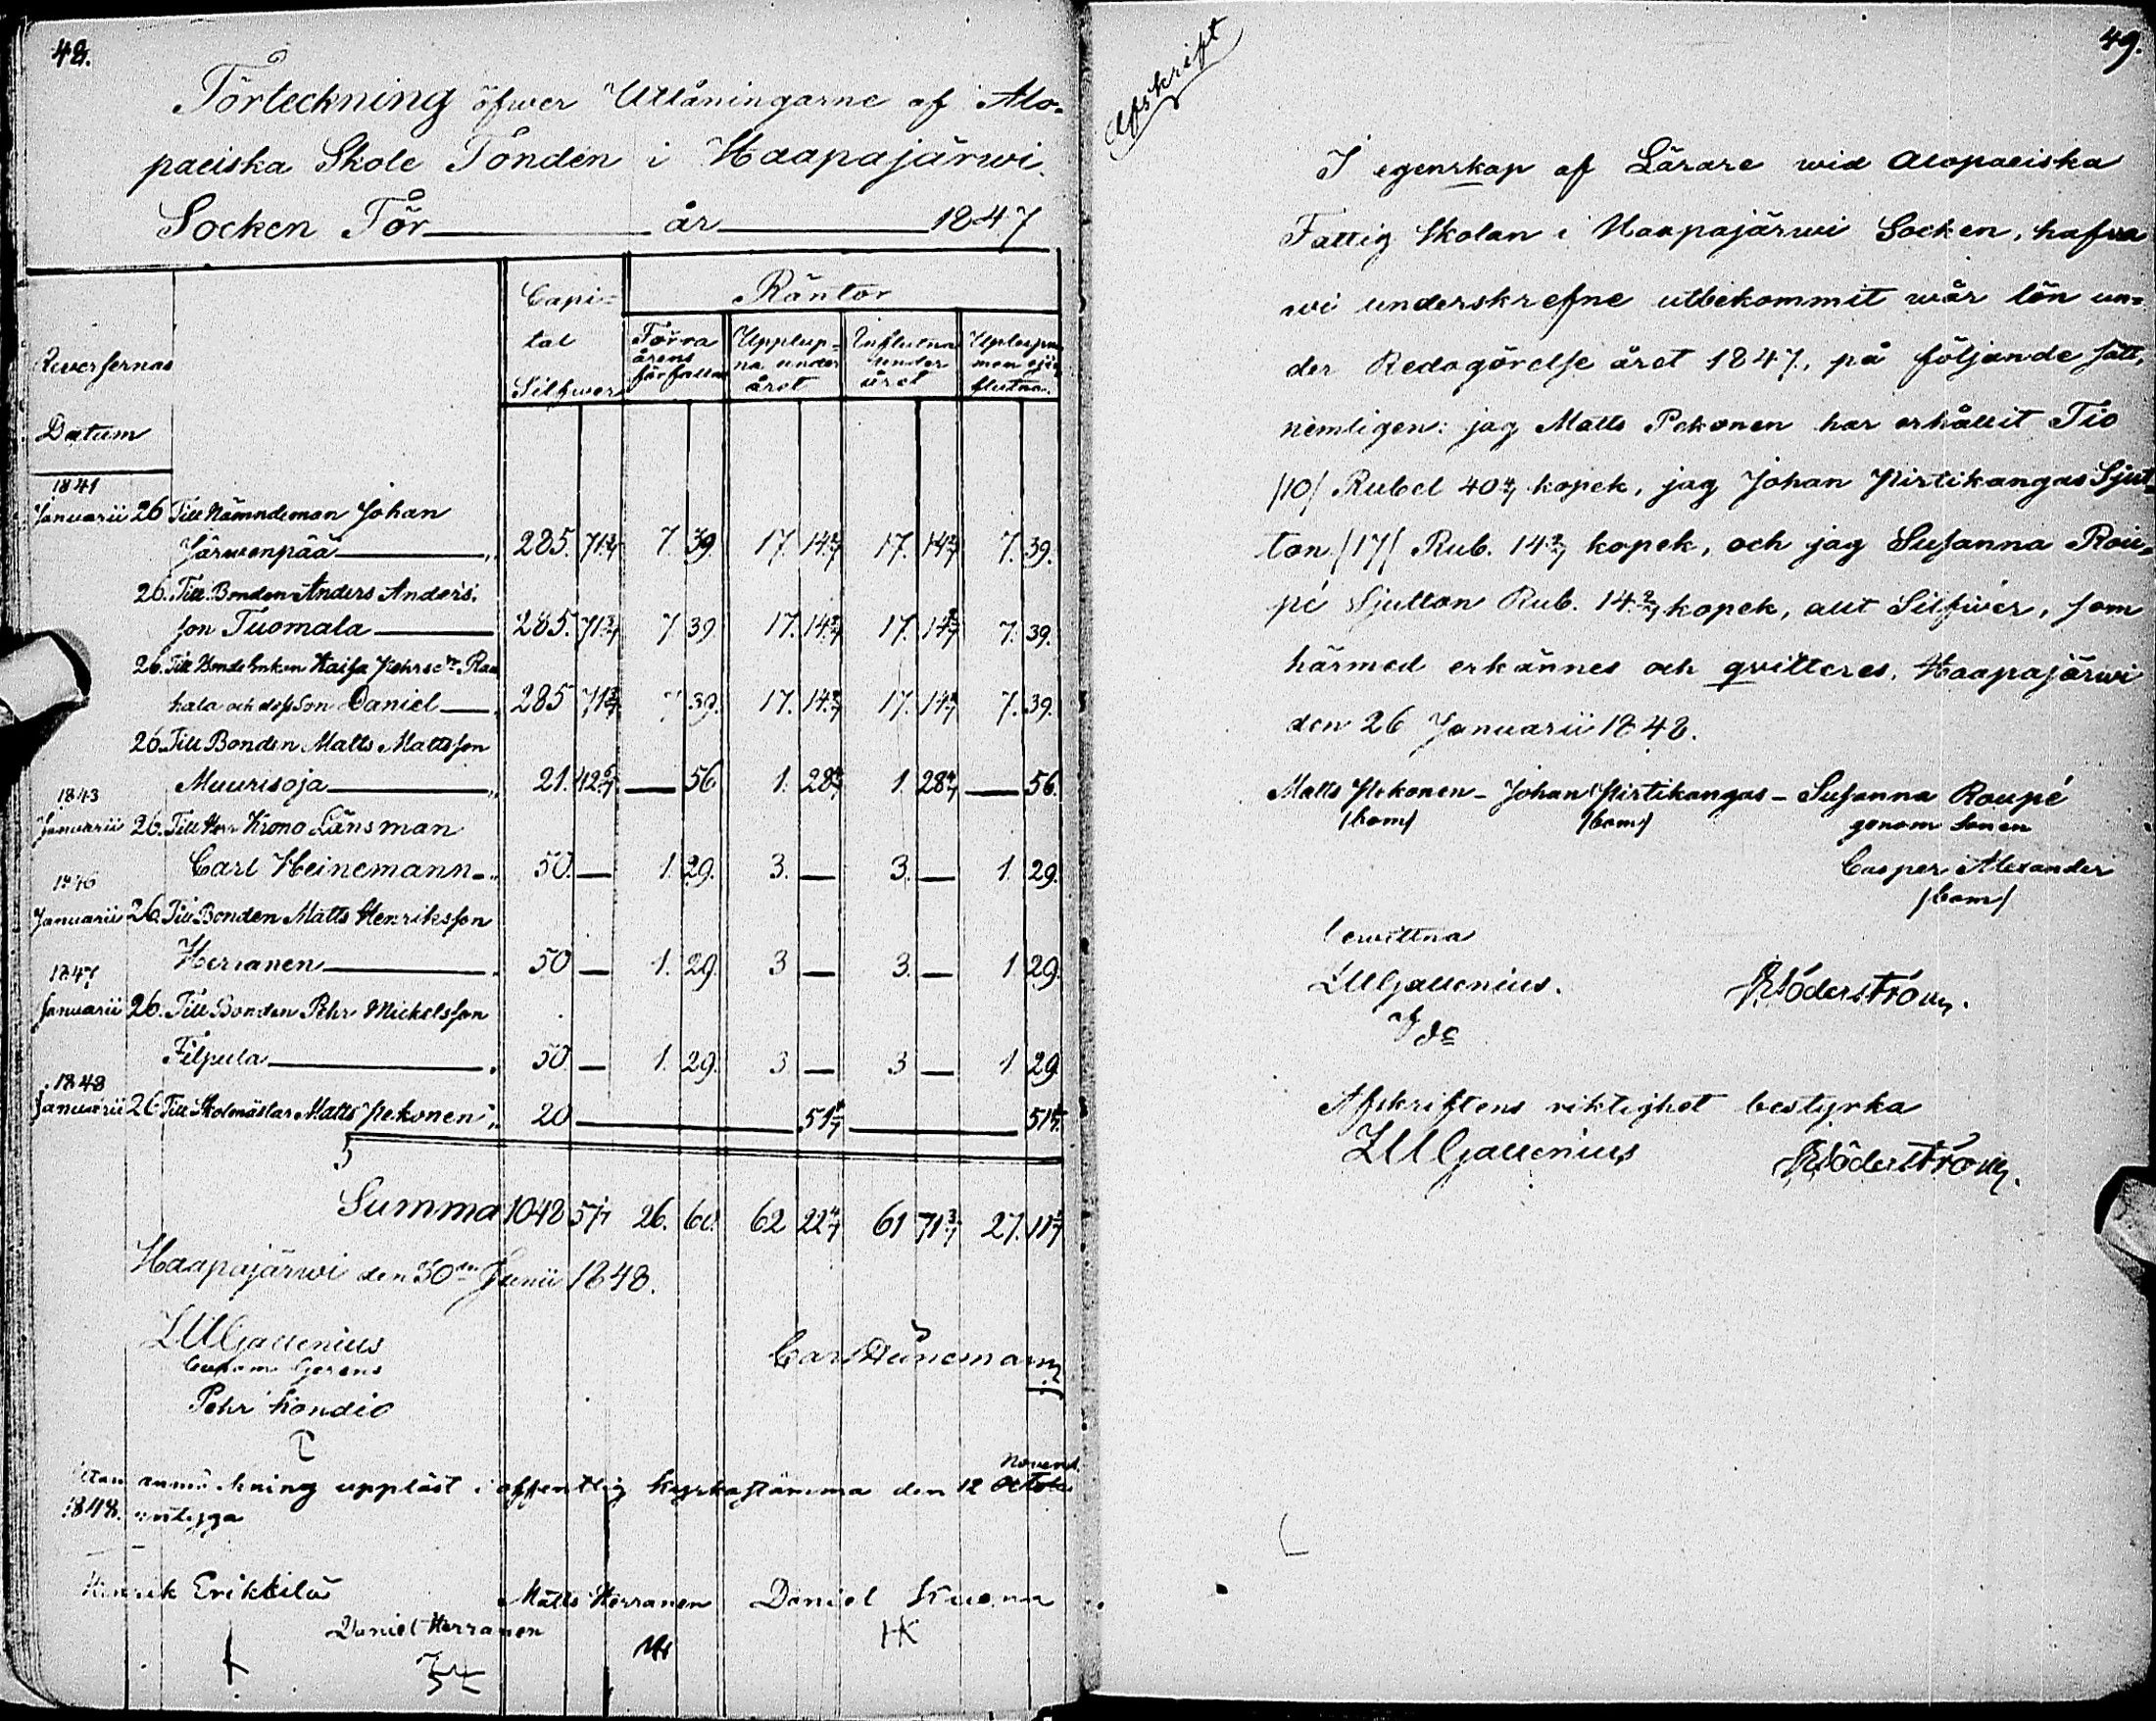 48.
Förteckning öfwer Utlåningarne af Alo-
paeiska Skole Fonden i Haapajärwi
Socken För år 1847
Reversernas
Datum
Capi-
tal
Silfwer
Räntor
Förra
årens
förfallna
Upplup-
na under
året
Influtna
under
året
Uplupna
men ej in
flutna.
1841
Januarii 26 Till Nämndeman Johan
Järwenpää 285. 71 3/7 7. 39 17. 14 2/7 17. 14 2/7 7. 39.
26. Till Bonden Anders Anders-
son Tuomala 285. 71 3/7 7 39. 17. 14 2/7 17. 14 2/7 7. 39.
26. Till Bonde Enkan Kaisa Pehrsdr Rau
hala och dess Son Daniel 285 71 3/7 7 39. 17. 14 2/7 17. 14 2/7 7. 39.
26. Till Bonden Matts Mattsson
Muurisoja 21. 42 6/7 — 56 1. 28 4/7 1. 28 4/7 — 56.
1843
Januarii 26. Till Herr Krono Länsman
Carl Heinemann 50. — 1. 29. 3. — 3. — 1. 29.
1846
Januarii 26. Till Bonden Matts Henriksson
Herranen 50 — 1. 29. 3 — 3. — 1 29.
1847
Januarii 26. Till Bonden Pehr Mickelsson
Filpula 50 — 1. 29. 3 — 3 — 1. 29
1848
Januarii 26 Till Skolmästar Matts Pekonen 20 — 51 1/7 — 51 1/7.
Summa 1048 57 1/7 26. 60. 62 22 4/7 61 71 3/7 27. 11 1/7
Haapajärwi den 30de Junii 1848.
Z U Gallenius
Carl Heinemann
Pehr Kondio
Utan anmärkning uppläst i offentlig kyrkostämma den 12 Octobr
Novemb.
1848. intyga
Henrik Erikkilä Matts Herranen Daniel Kuona
Daniel Herranen
HK
49.
Afskrift
I egenskap af Lärare wid Alopaeiska
Fattig Skolan i Haapajärwi Socken, hafva
wi underskrefne utbekommit wår lön un-
der Redogörelse året 1847, på följande sätt,
nemligen: jag Matts Pekonen har erhållit Tio
/10/ Rubel 40 4/7 kopek, jag Johan Pirtikangas Sjut
ton /17/ Rub. 14 2/7 kopek, och jag Susanna Rou-
pé Sjutton Rub. 14 2/7 kopek, allt Silfwer, som
härmed erkännes och qvitteres. Haapajärwi
den 26 Januarii 1848.
Matts Pekonen - Johan Pirtikangas - Susanna Roupé
/bom/ /bom/ genom Sonen
Casper Alexander
/bom/
bewittna
Z U Gallenius. Söderström.
Afskriftens riktighet bestyrka
Z U Gallenius Söderström.